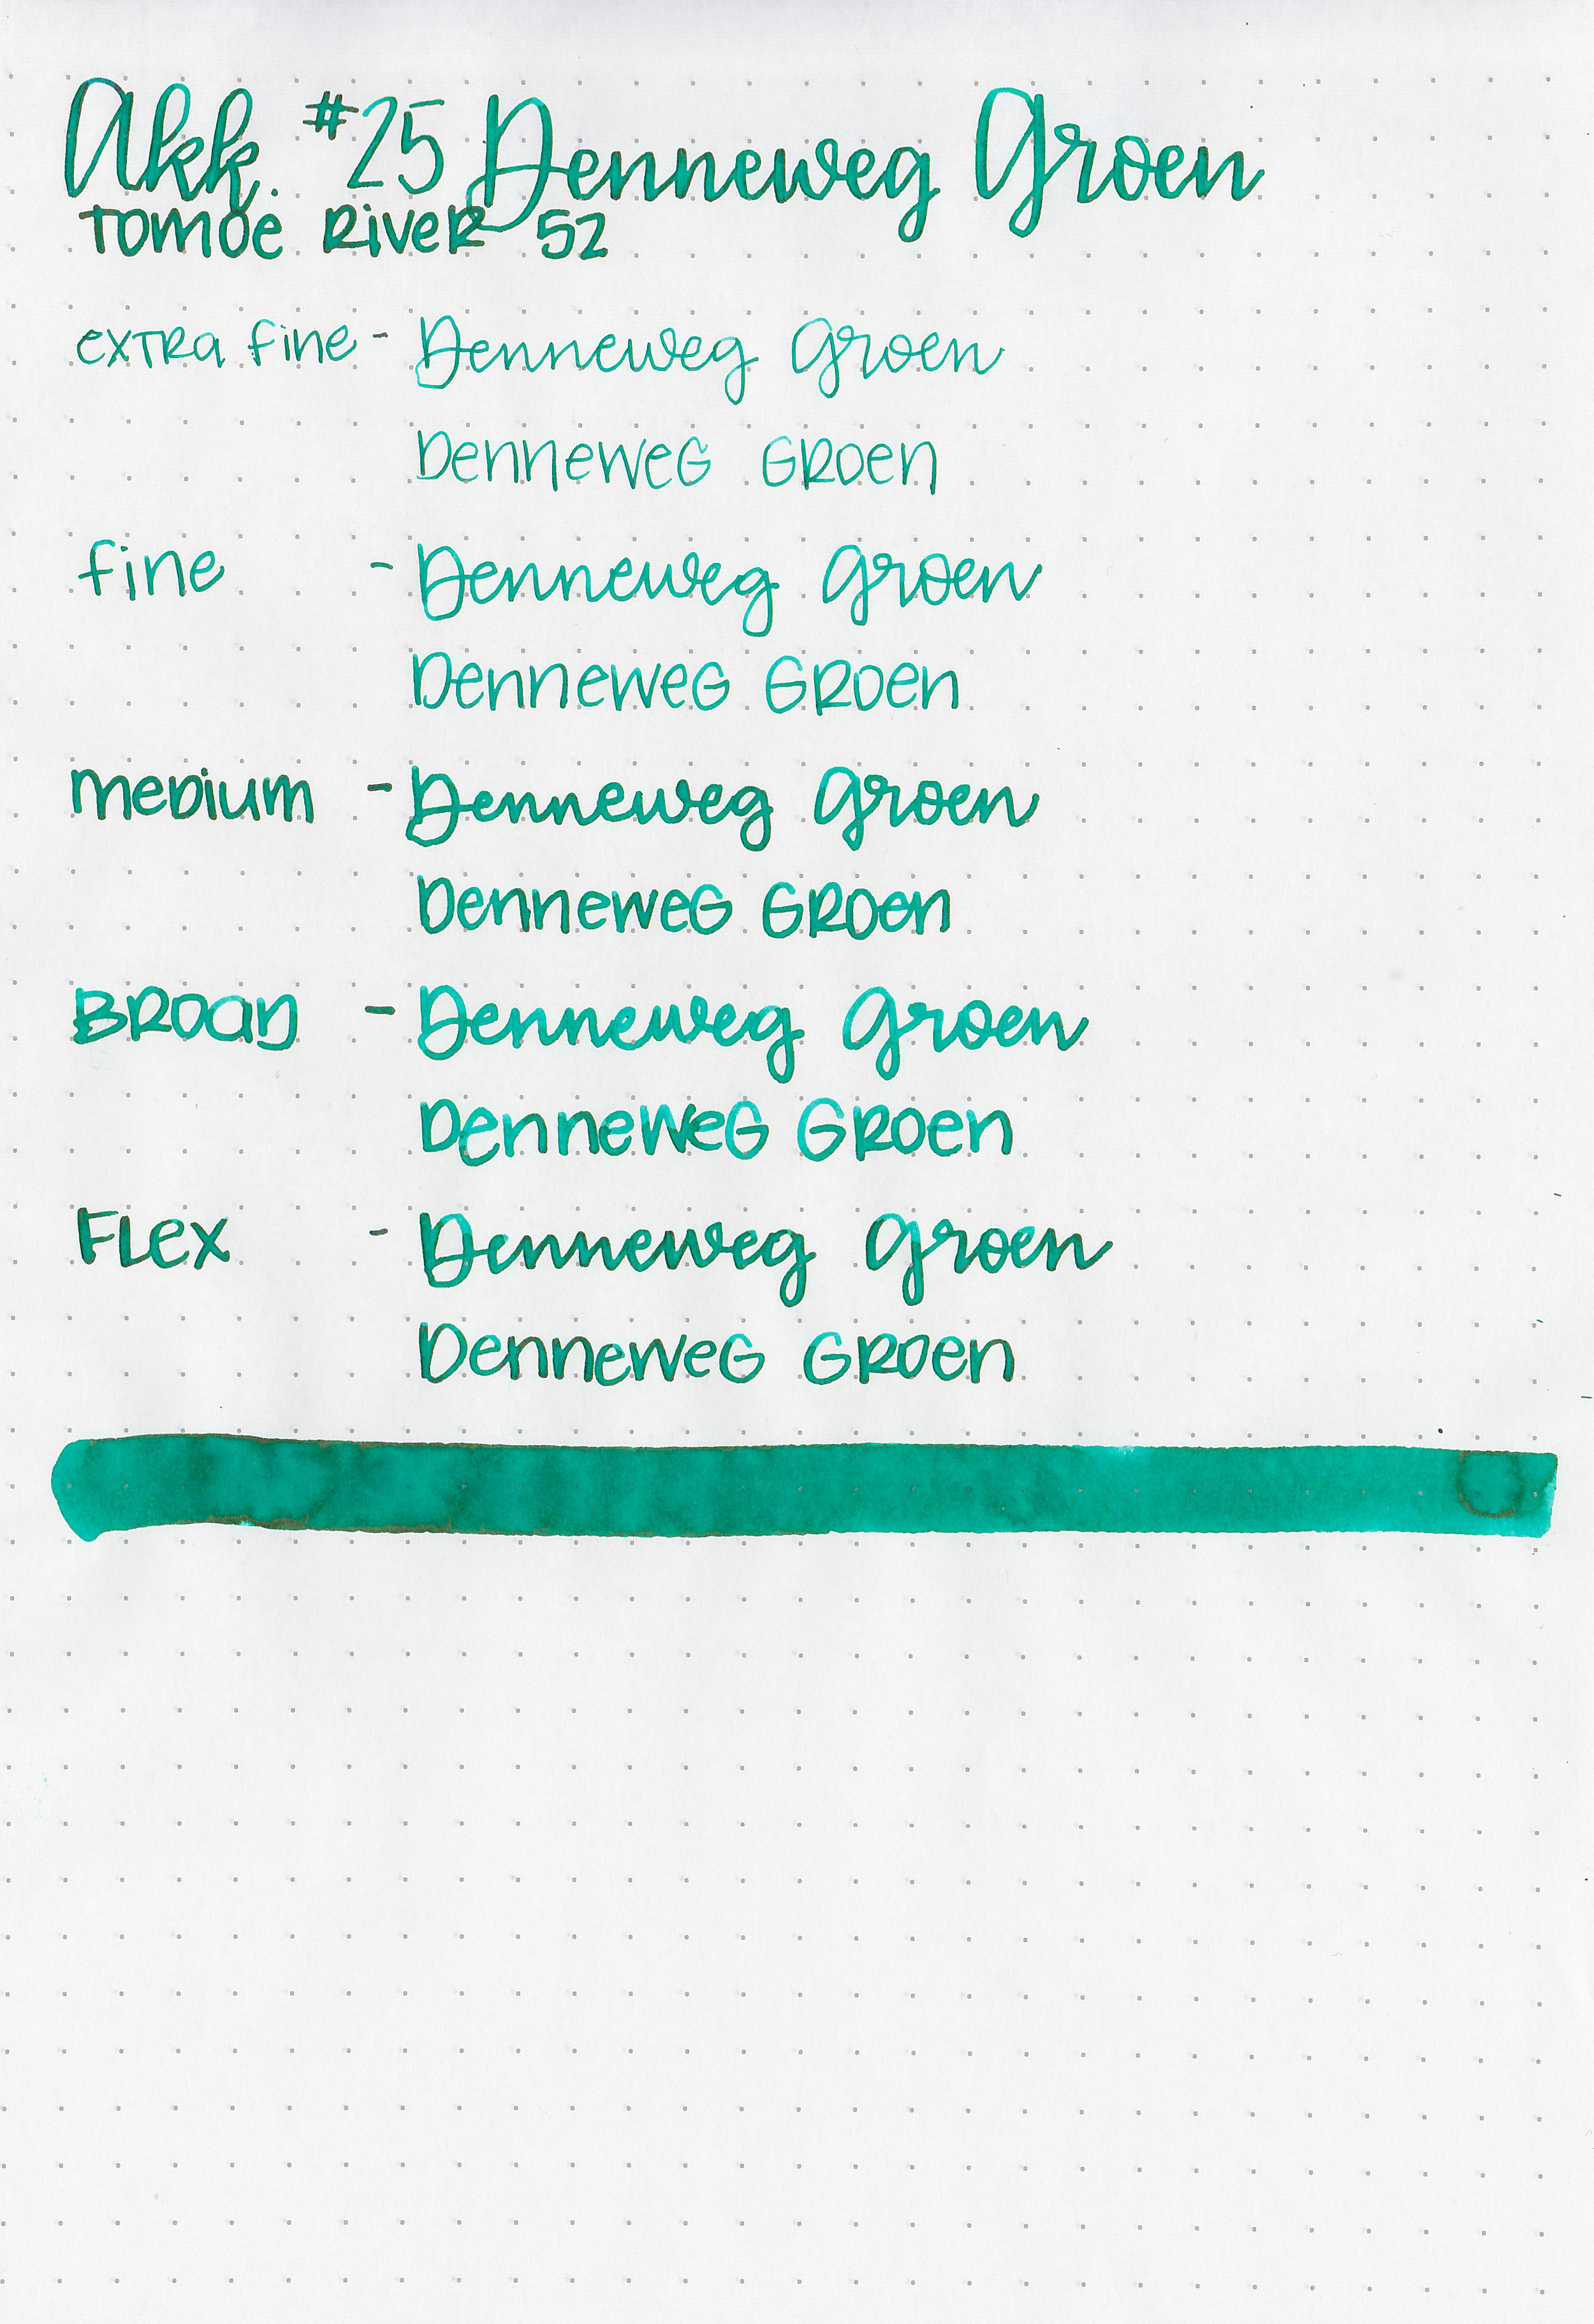 Akk. #25 Denneweg Groen
Tomoe River 52
extra fine - Denneweg Groen
Denneweg Groen
fine - Denneweg Groen
Denneweg Groen
Medium - Denneweg Groen
Denneweg Groen
Broad - Denneweg Groen
Denneweg Groen
Flex - Denneweg Groen
Denneweg Groen